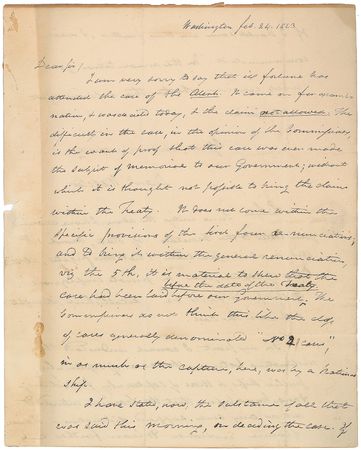 Washington Feb. 24. 1823
Dear Sir,
I am very sorry to say that ill fortune has
attended the case of the Alert. It came on for exami-
nation, & was acted today, & the claim not allowed. The
difficulty in the case, in the opinion of the Commissioners,
is the want of proof that this case was ever made
the subject of memorial to our Government; without
which it is thought not possible to bring the claim
within the Treaty. It does not come within the
specific provisions of the and
and to bring it within the general renunciation,
viz the 5th, it is material to shew that the
before the date of the Treaty
case had been laid before our government. The
Commissioners do not think this like the class
of cases generally denominated "No 2 cases",
in as much as the capture, here, was by a National
ship.
I have stated, now, the substance of all that
was said this morning, in deciding the case. If